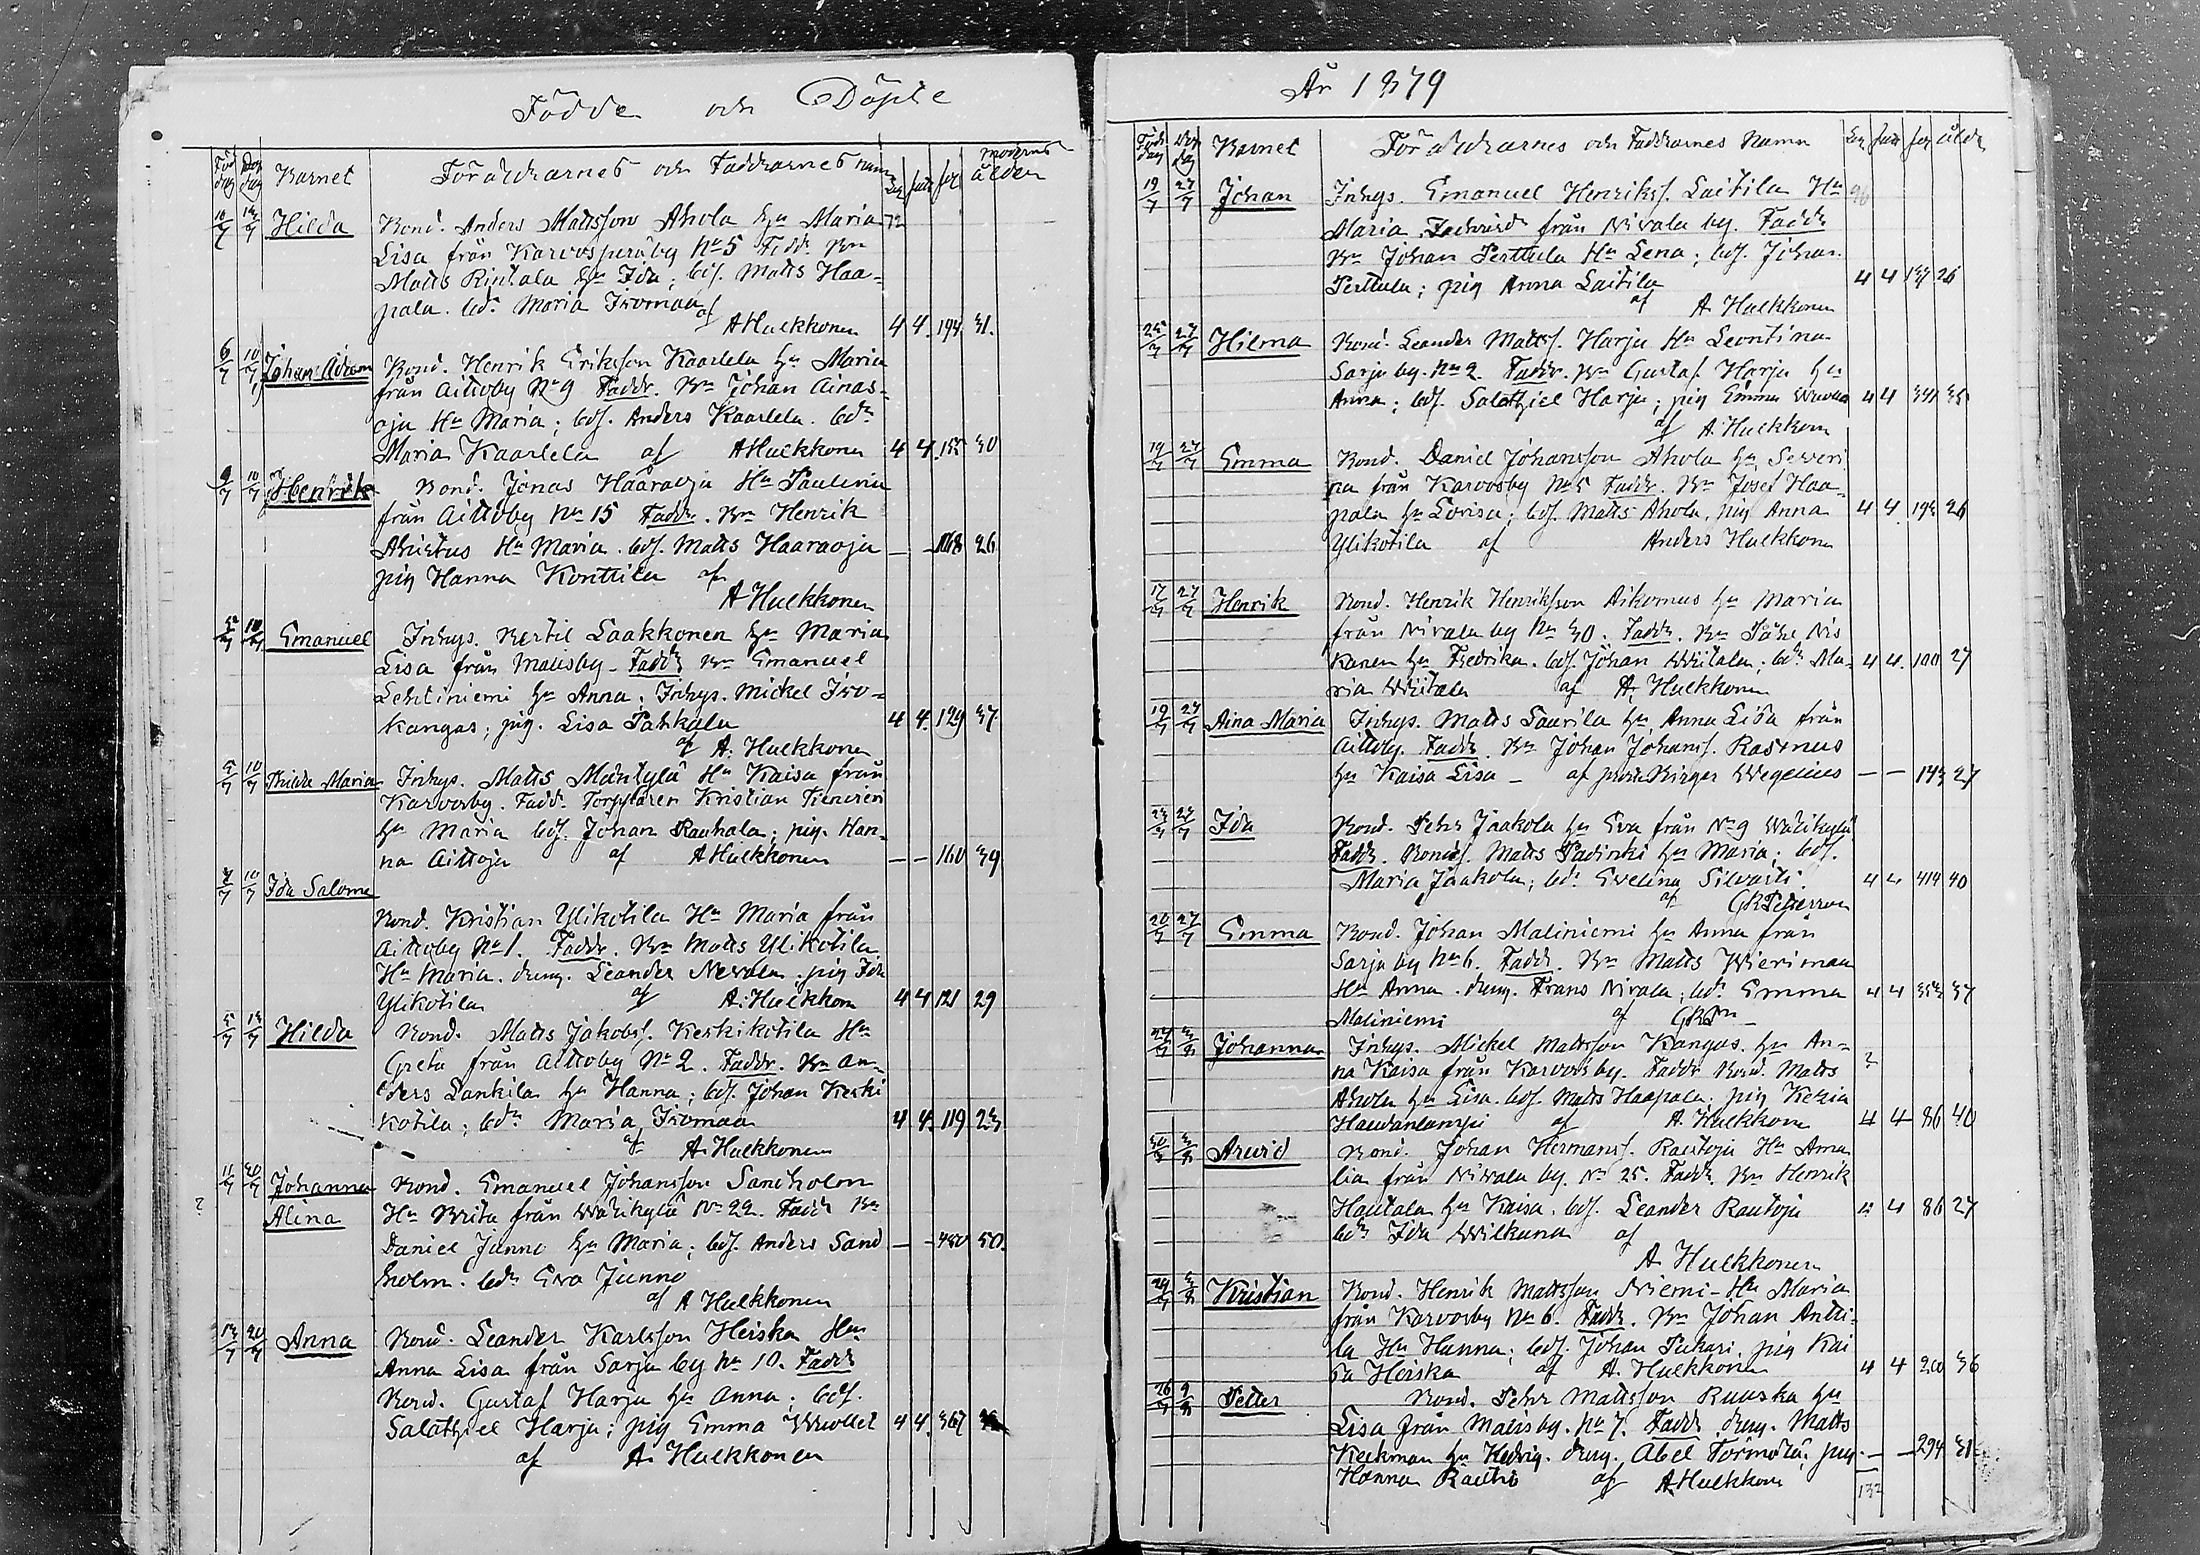 Födde och Döpte
Född dag Döp dag Barnet Föräldrarnes och Faddrarnes namn moderns ålder
Hilda Bond. Anders Mattsson Ahola Hu Maria
Lisa från Karvosperäby No 5 Fadd. Bn
Matts Rintala Hu Ida; bds. Matts Haa-
pala. bdr Maria Iromaa
af A Hulkkonen 4 4 194 31.
6/7 10/7 Johan Adam Bond. Henrik Eriksson Kaarlela Hu Maria
från Aittoby No 9 Faddr. Bn Johan Ainas-
oja Hu Maria; bds. Anders Kaarlela. bdr
Maria Kaarlela af A Hulkkonen 4 4 30
10/7 Henrik Bond. Jonas Haaraoja Hu Paulina
från Aittoby No 15 Faddr. Bn Henrik
Hu Maria. bds. Matts Haaraoja — — 168 26
pig Hanna Konttila af
A Hulkkonen
10/7 Emanuel Inhys. Bertil Laakkonen Hu Maria
Lisa från Malisby - Faddr Bn Emanuel
Lehtiniemi Hu Anna; Inhys. Mickel Iro-
kangas; pig. Lisa Pahkala 4 4 129 37
af A. Hulkkonen
5/7 10/7 Maria Inhys. Matts Mäntylä Hu Kaisa från
Karvosby. Fadd. Torpparen Kristian
Hu Maria bds. Johan Rauhala; pig. Han-
na Aittoja af A Hulkkonen — — 160 39
10/7 Ida Salome
Bond. Kristian Ylikotila Hu Maria från
Aittoby No 1. Faddr. Bn Matts Ylikotila
Hu Maria. dräng. Leander Nevala, pig Ida
Ylikotila af A. Hulkkonen 4 4 121 29
Hilda Bond. Matts Jakobs. Keskikotila Hu
Greta från Aittoby No 2. Faddr. Bn An-
ders Lankila Hu Hanna; bds. Johan Keski
kotila; bdr Maria Iromaa 4 4 119 23
af A. Hulkkonen
11/7 20/7 Johanna Bond. Emanuel Johansson Sandholm
? Alina Hu Brita från Wälikylä No 22. Faddr Bn
Daniel Junno Hu Maria; bds. Anders Sand — — 480 30.
holm. bdr Eva Junno
af A Hulkkonen
13/7 20/7 Anna Bond. Leander Karlsson Heiska Hu
Anna Lisa från Sarja by No 10. Faddr
Bond. Gustaf Harju Hu Anna; bds.
Salathiel Harju; pig Emma Wuollet 4 4 367
af A. Hulkkonen
År 1879
Född dag Döp dag Barnet Föräldrarnes och Faddrarnes Namn ålder
19/7 27/7 Johan Inhys. Emanuel Henrikss. Laitila Hu
Maria från Nivala by. Faddr
Bn Johan Perttula Hu Lena; bds. Johan
Perttula; pig Anna Laitila 4 4 137 26
af A Hulkkonen
25/7 27/7 Hilma Bond. Leander Matts. Harju Hu Leontina
Sarja by. No 2. Faddr. Bn Gustaf Harju Hu
Anna; bds. Salathiel Harju; pig Emma 4 4 341 35
af A Hulkkonen
19/7 27/7 Emma Bond. Daniel Johansson Ahola Hu Severi
na från Karvosby No 5 Faddr. Bn Josef Haa-
pala Hu Lovisa; bds. Matts Ahola, pig Anna 4 4 193 26
Ylikotila af Anders Hulkkonen
17/7 27/7 Henrik Bond. Henrik Henriksson Aikornus Hu Maria
från Nivala by No 30. Faddr. Bn Påhl Nis
kanen Hu Fredrika. bds. Johan Wiitala; bdr Ma- 4 4 100 27
ria Wiitala af A. Hulkkonen
19/7 27/7 Aina Maria Inhys. Matts Saurila Hu Anna Lisa från
Aittoby. Faddr. Bn Johan Johans. Rasmus
Hu Kaisa Lisa — af Birger Wegelius — — 143 27
23/7 27/7 Ida Bond. Pehr Jaakola Hu Eva från No 9 Wälikylä
Faddr. Matts Padinki Hu Maria; bds.
Maria Jaakola; bdr. Evelina Silvasti 4 4 414 40
af
20/7 27/7 Emma Bond. Johan Maliniemi Hu Anna från
Sarja by No 6. Faddr. Bn Matts Wierimaa
Hu Anna. dräng. Frans Nivala; bdr. Emma 4 4 353 37
Maliniemi af
Johanna Inhys. Mickel Mattsson Kangas. Hu An- ?
na Kaisa från Karvosby. Faddr Bond. Matts
Ahola Hu Lisa. bds. Matts Haapala; pig
af A. Hulkkonen 4 4 86 40
30/7 Arvid Bond. Johan Hermans. Rautoja Hu Ama
lia från Nivala by. No 25. Faddr. Bn Henrik
Hautala Hu Kaisa. bds. Leander Rautoja 4 4 86 27
bdr Ida Wilkuna af
A Hulkkonen
Kristian Bond. Henrik Mattsson Niemi - Hu Maria
från Karvosby No 6. Faddr. Bn Johan Antti-
la Hu Hanna; bds. Johan Pukari, pig Kai
sa Heiska af A. Hulkkonen 4 4 200 36
26/7 Petter Bond. Pehr Mattsson Ruuska Hu
Lisa från Malisby. No 7. Faddr dräng. Matts
Keckman Hu Hedvig. dräng. Abel Törmälä; pig — — 294 31
Hanna Rautio af A Hulkkonen
132